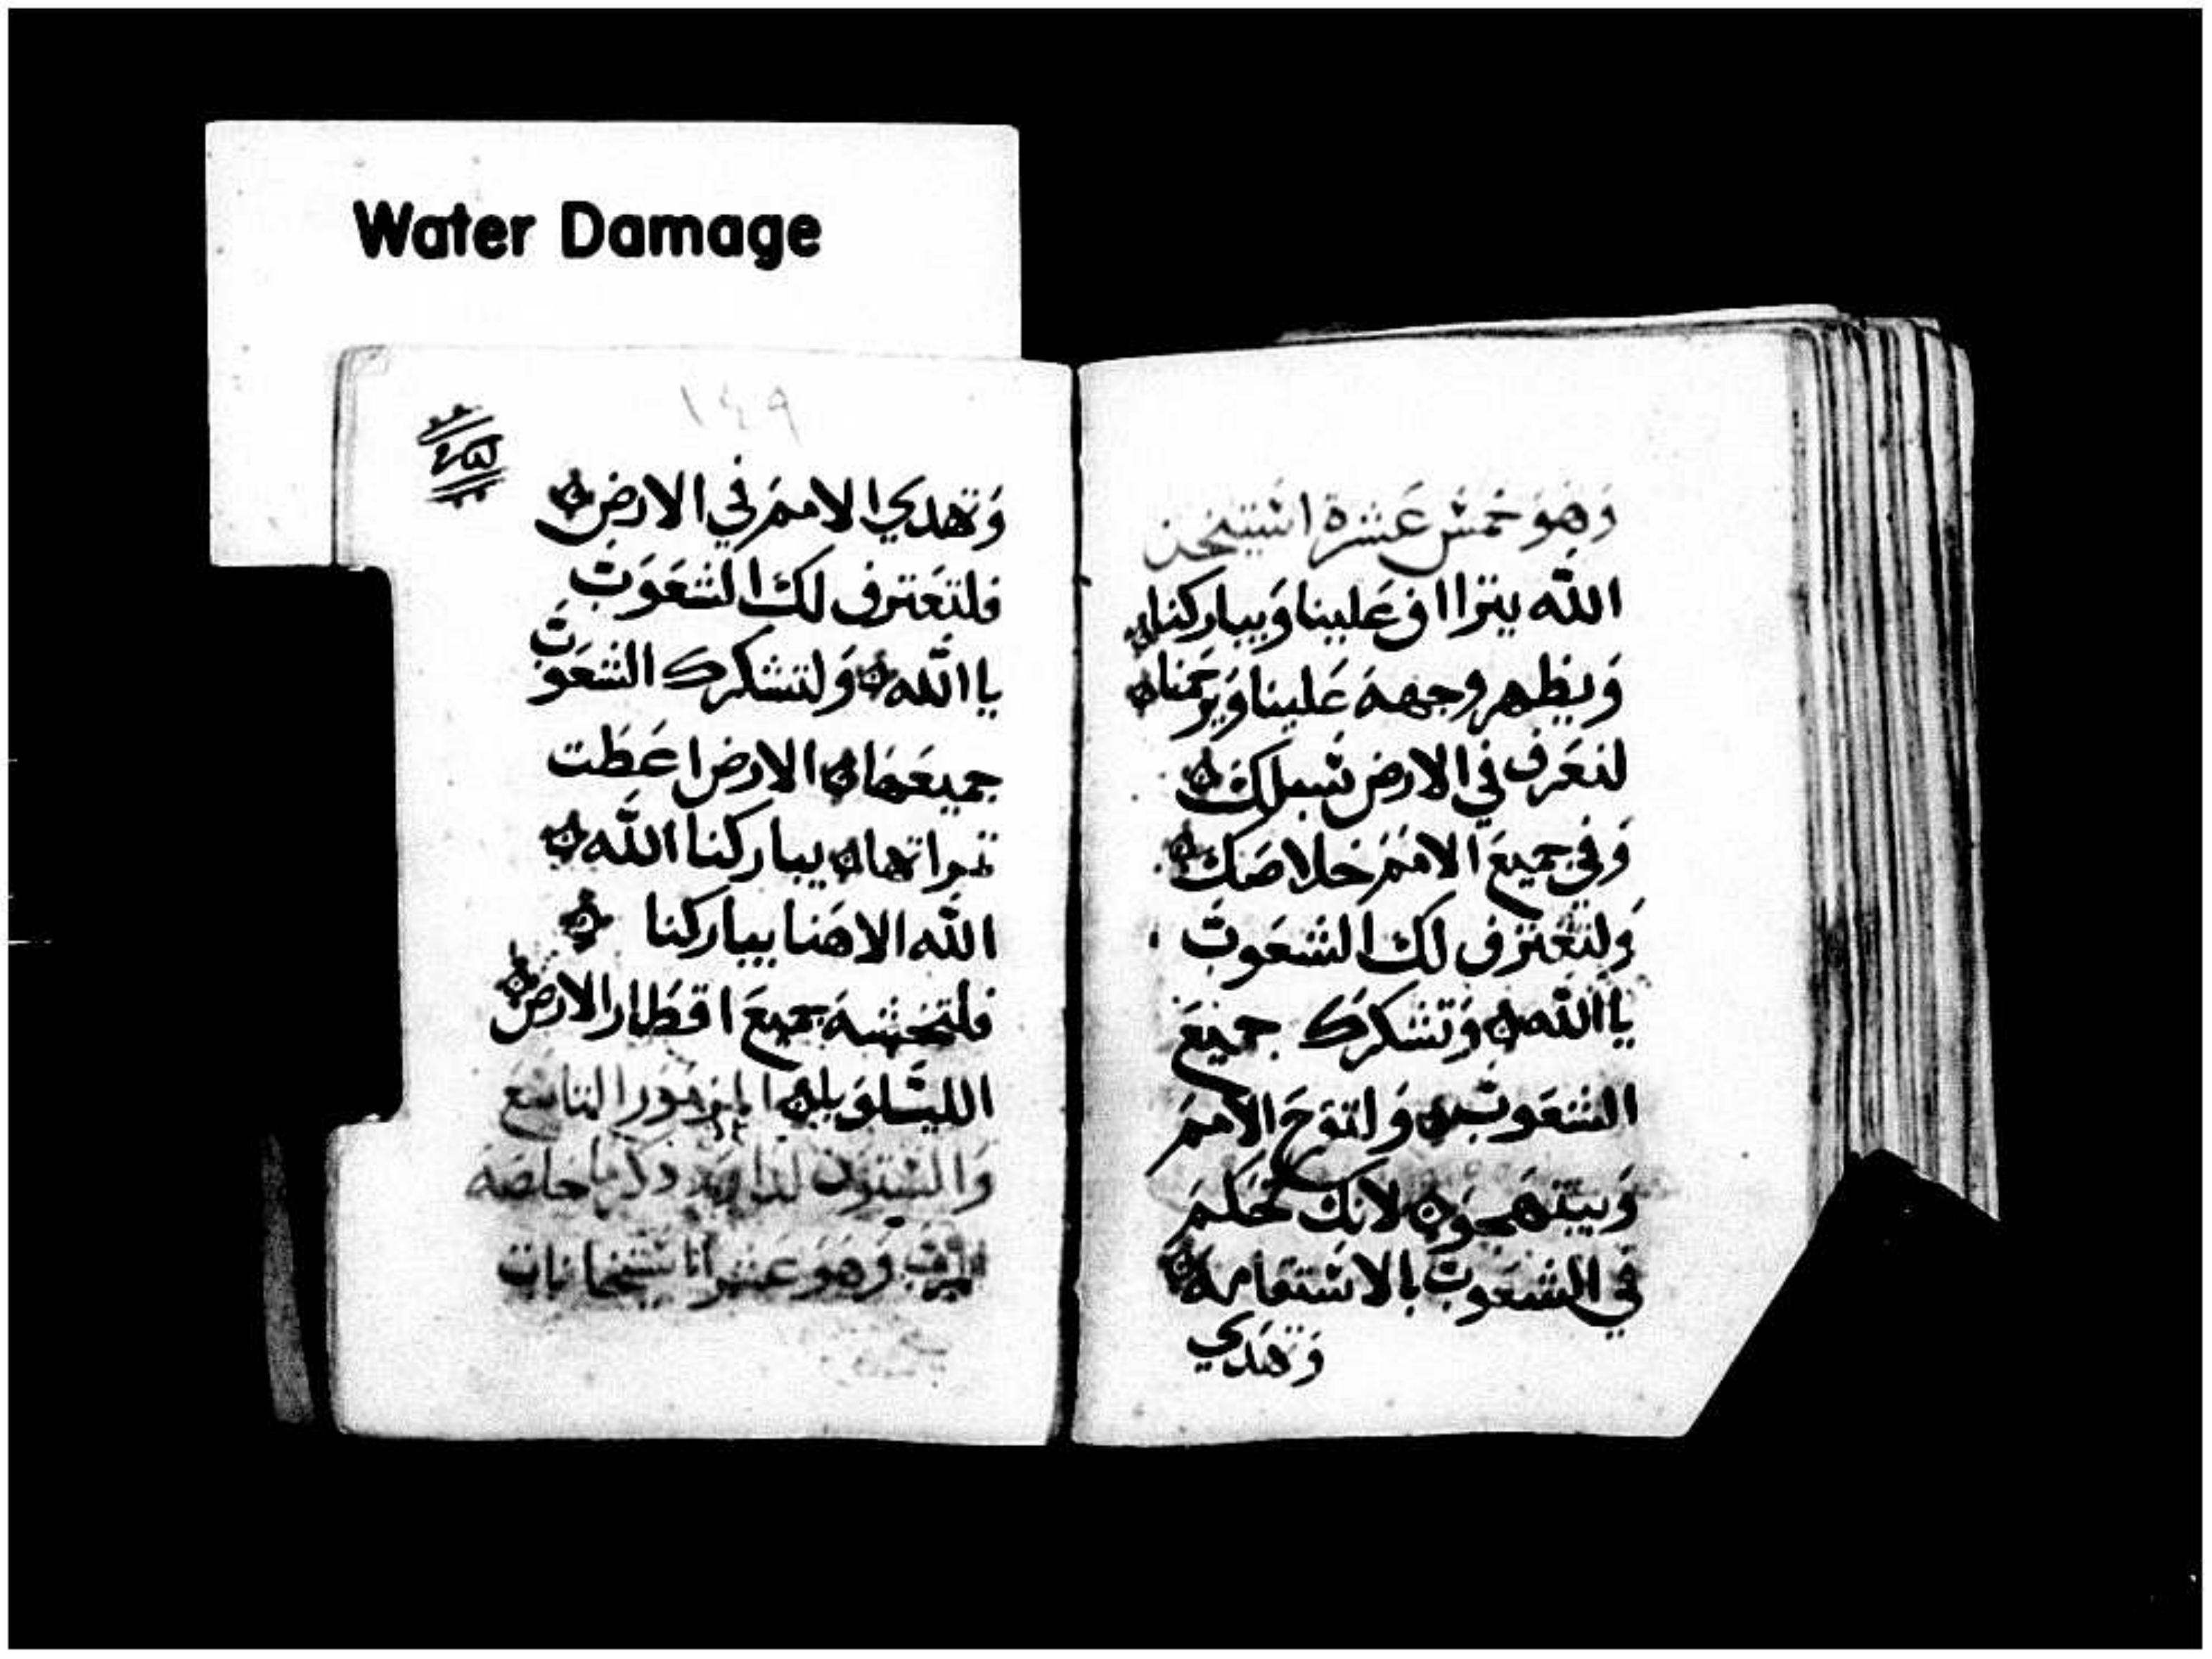 Water Damage
وَهوَ خمسَ عَشرة استيخن
الله يتراافَ عَلينا وَيباركنا
وَيظهر وجههَ عَلينا وَيرحمنا
لنعَرف في الارض سَبلك
وَفي جميعَ الاممَ خلاصَك
وَلتعَترف لك الشعَوبَ
يا الله وَتشكرك جميعَ
الشعَوبَ وَلتفرَح الاممَ
وَيبتهجوَن لانك تحَكمَ
في الشعَوبَ بالاستقامة
وَتهَدي
١٤٩
وَتهدي الاممَ في الارض
فلتعَترف لك الشعَوَبَ
يا الله وَلتشكرك الشعَوبَ
جميعَها الارض اعَطَت
ثمراتها يباركنا الله
الله الاهَنا يباركنا
فلتخشهَ جميعَ اقطَار الارض
الليلوَيا المزموَر التاسعَ
وَالستوَن لداود
وَهوَ عشر استيخانات